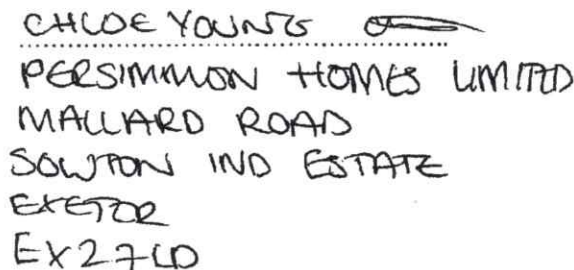 CHLOE YOUNG
PERSIMMON HOMES LIMITED
MALLARD ROAD
SOWTON IND ESTATE
EXETOR
EX2 7LD